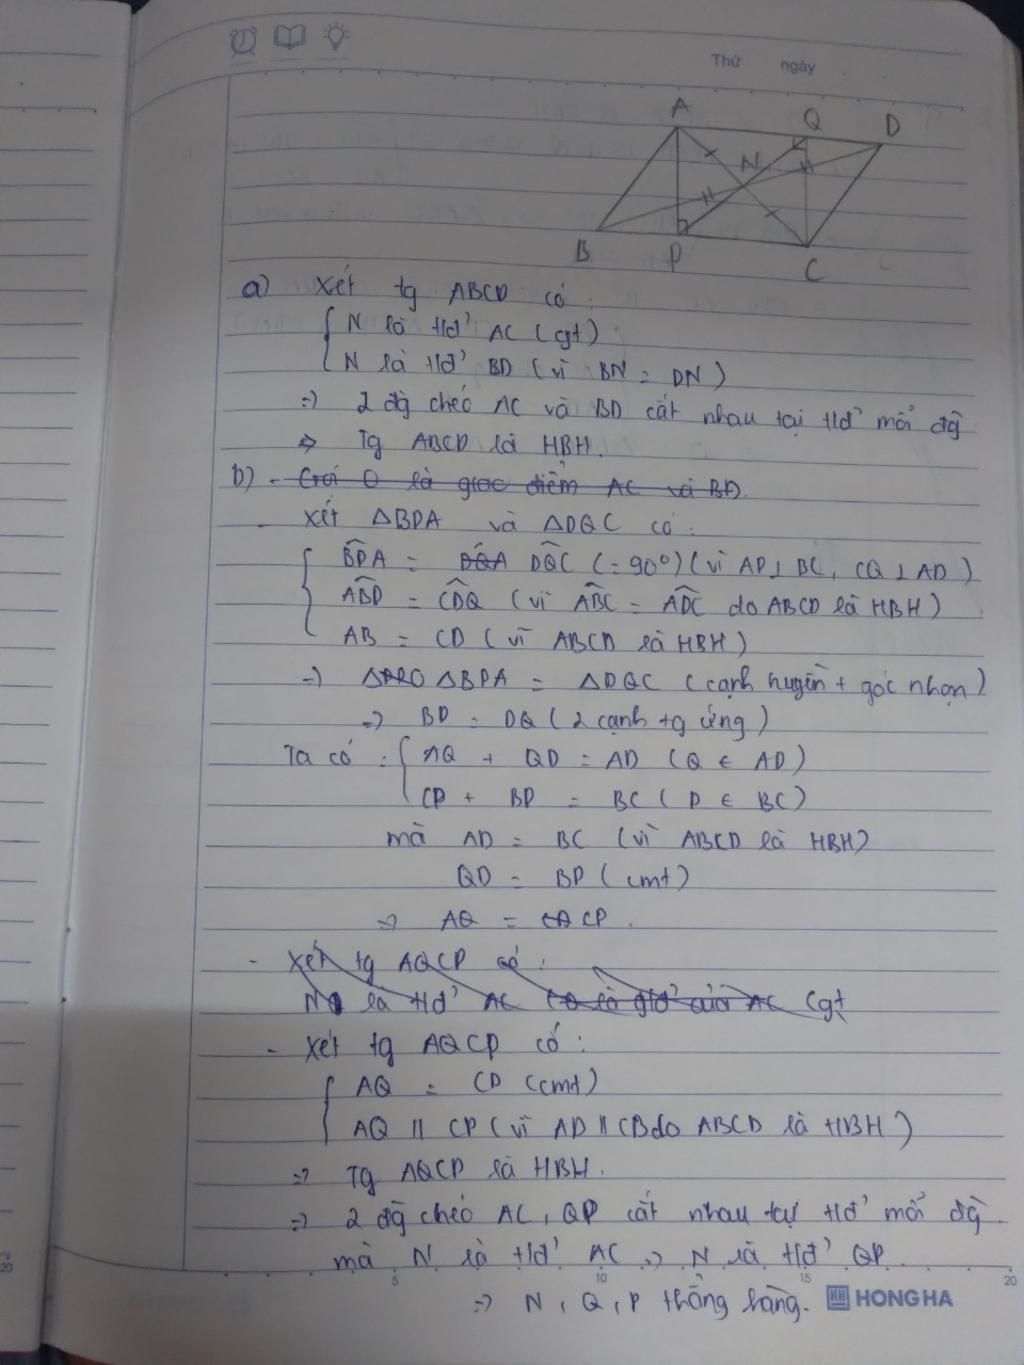 Thứ ngày
A Q D
N
B P C
a) Xét tg ABCD có :
N là tđ' AC (gt)
N là tđ' BD (vì BN = DN)
=> 2 đg chéo AC và BD cắt nhau tại tđ' mỗi đg
=> Tg ABCD là HBH.
b) - Gọi O là giao điểm AC và BD.
- Xét ΔBPA và ΔDQC có :
BPA = DQA DQC (= 90°) (vì AP ⊥ BC, CQ ⊥ AD)
ABP = CDQ (vì ABC = ADC do ABCD là HBH)
AB = CD (vì ABCD là HBH)
=> ΔBPA = ΔDQC (cạnh huyền + góc nhọn)
=> BP = DQ (2 cạnh tg ứng)
Ta có : AQ + QD = AD (Q ∈ AD)
CP + BP = BC (P ∈ BC)
mà AD = BC (vì ABCD là HBH)
QD = BP (cmt)
=> AQ = CP.
- Xét tg AQCP có :
N là tđ' AC (O là gđ' của AC (gt
- Xét tg AQCP có :
AQ = CP (cmt)
AQ // CP (vì AD // CB do ABCD là HBH)
=> Tg AQCP là HBH.
=> 2 đg chéo AC, QP cắt nhau tại tđ' mỗi đg.
mà N là tđ' AC => N là tđ' QP.
=> N, Q, P thẳng hàng.
5 10 15 20
HH HONG HA
20